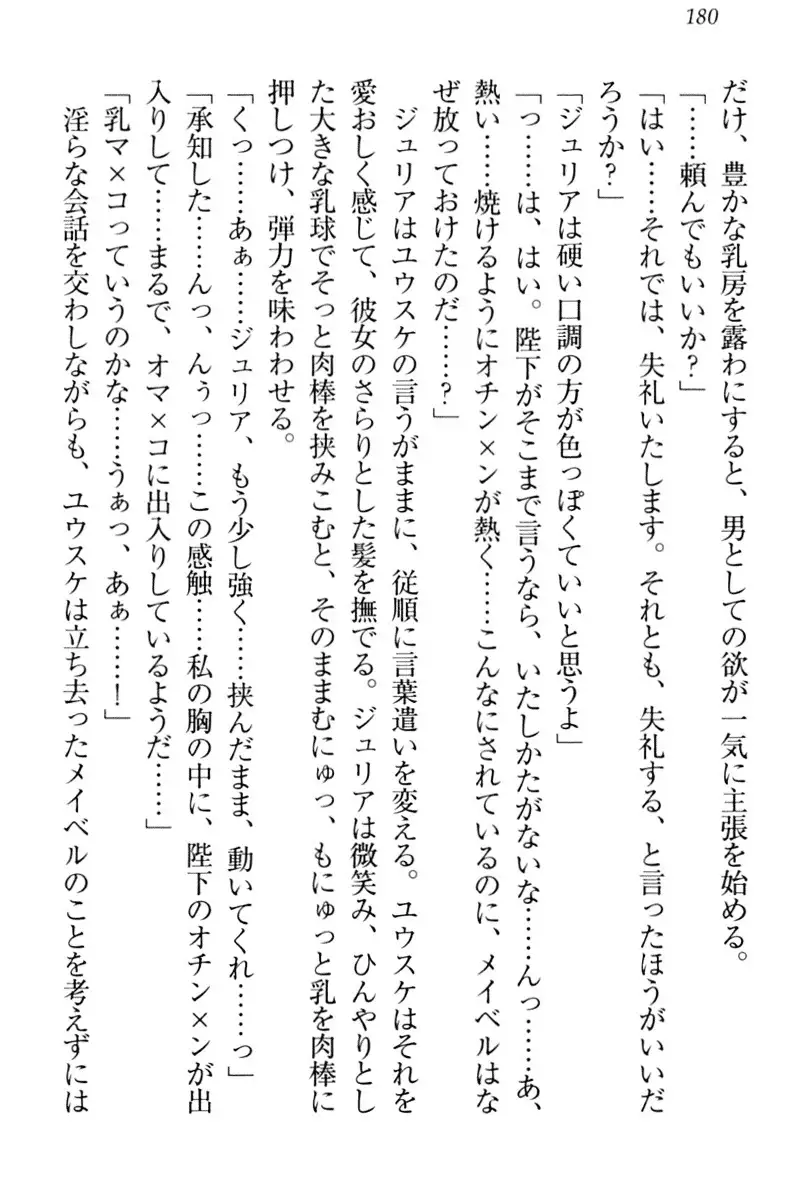 180
だけ、豊かな乳房を露わにすると、男としての欲が一気に主張を始める。
「……頼んでもいいか？」
「はい……それでは、失礼いたします。それとも、失礼する、と言ったほうがいいだ
ろうか？」
「ジュリアは硬い口調の方が色っぽくていいと思うよ」
「っ……は、はい。陛下がそこまで言うなら、いたしかたがないな……んっ……あ、
熱い……焼けるようにオチン×ンが熱く……こんなにされているのに、メイベルはな
ぜ放っておけたのだ……？」
ジュリアはユウスケの言うがままに、従順に言葉遣いを変える。ユウスケはそれを
愛おしく感じて、彼女のさらりとした髪を撫でる。ジュリアは微笑み、ひんやりとし
た大きな乳球でそっと肉棒を挟みこむと、そのままむにゅっ、もにゅっと乳を肉棒に
押しつけ、弾力を味わわせる。
「くっ……あぁ……ジュリア、もう少し強く……挟んだまま、動いてくれ……っ」
「承知した……んっ、んぅっ……この感触……私の胸の中に、陛下のオチン×ンが出
入りして……まるで、オマ×コに出入りしているようだ……」
「乳マ×コっていうのかな……うぁっ、あぁ……！」
淫らな会話を交わしながらも、ユウスケは立ち去ったメイベルのことを考えずには